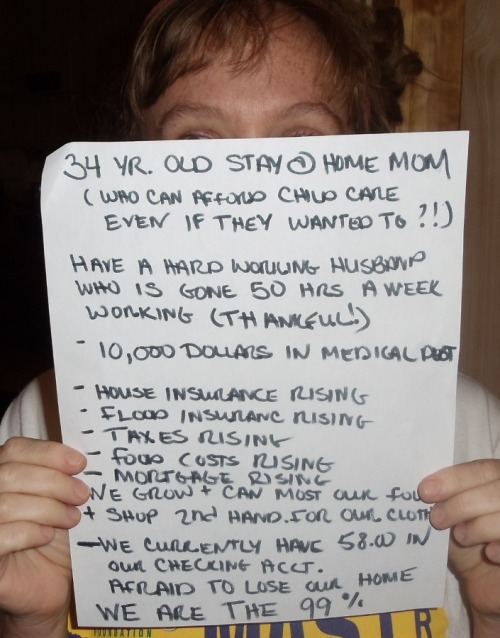 34 YR. OLD STAY @ HOME MOM
(WHO CAN AFFORD CHILD CARE
EVEN IF THEY WANTED TO ?!!)
HAVE A HARD WORKING HUSBAND
WHO IS GONE 50 HRS A WEEK
WORKING (THANKFUL!)
- 10,000 DOLLARS IN MEDICAL DEBT
- HOUSE INSURANCE RISING
- FLOOD INSURANC RISING
- TAXES RISING
- FOOD COSTS RISING
- MORTGAGE RISING
WE GROW + CAN MOST OUR
+ SHOP 2nd HAND. FOR OUR
- WE CURRENTLY HAVE 58.00 IN
OUR CHECKING ACCT.
AFRAID TO LOSE OUR HOME
WE ARE THE 99%
FOUNDATION